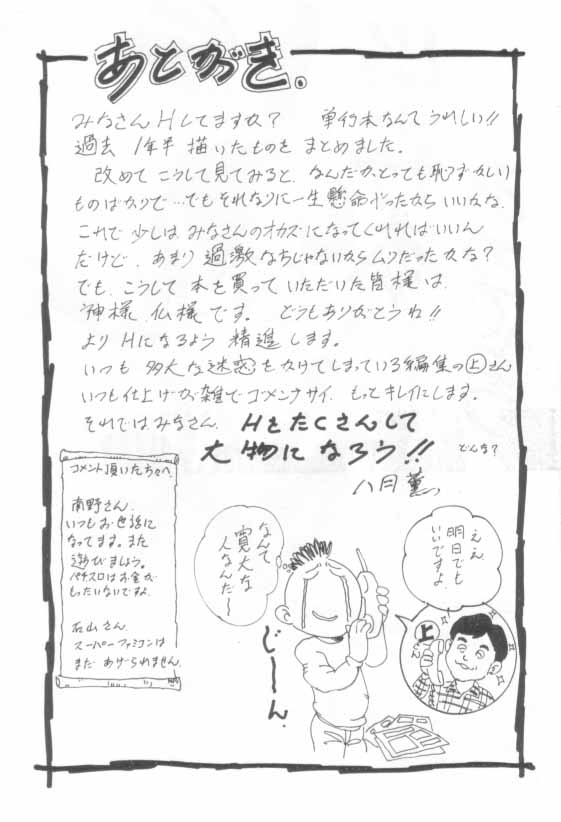 あとがき.
みなさんHしてますか? 単行本なんてうれしい!!
過去 1年半 描いたものを まとめました。
改めて こうして見てみると、なんだか、とっても恥ずかしい
ものばかりで…でもそれなりに一生懸命だったから いいかな.
これで 少しは みなさんのオカズになってくれればいいん
だけど、あまり 過激なちじゃないからムリだったかな?
でも、こうして 本を買って いただいた皆様は、
神様、仏様です。 どうもありがとうね!!
より Hになるよう 精進 します。
いつも 多大な迷惑をかけてしまっている編集の㊤さん
いつも仕上げが雑でゴメンナサイ. もっとキレイにします。
それではみなさん. Hをたくさんして
大物になろう!! どんな?
八月 薫
コメント頂いた方々へ.
南野さん.
いつもお世話に
なってます。また
遊びましょう。
パチスロはお金が
もったいないですよ.
石山さん.
スーパーファミコンは
まだ あげられません.
なんて
寛大な
人なんだ〜
じ〜〜ん.
ええ
明日でも
いいですよ.
上
さん